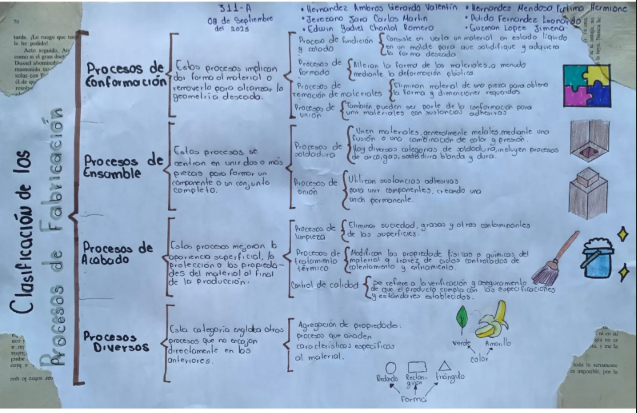 311-A
08 de Septiembre de 2025
• Hernández Ambros Gerardo Valentín
• Jerezano Jara Carlos Martín
• Edwin Yadiel Chantot Romero
• Hernández Mendoza Fátima Hermione
• Pulido Fernández Leonardo
• Guzmán López Jimena
Clasificación de los
Procesos de Fabricación
Procesos de
Conformación
Estos procesos implican
dar forma al material o
removerlo para alcanzar la
geometría deseada.
Proceso de fundición
y colado
Consiste en verter un material en estado líquido
en un molde para que solidifique y adquiera
la forma deseada
Procesos de
formado
Alteran la forma de los materiales, a menudo
mediante la deformación plástica
Procesos de
remoción de materiales
Eliminan material de una pieza para obtener
la forma y dimensiones requeridas
Procesos de
unión
También pueden ser parte de la conformación para
unir materiales con sustancias adhesivas
Procesos de
Ensamble
Estos procesos se
centran en unir dos o más
piezas para formar un
componente o un conjunto
completo.
Procesos de
soldadura
Unen materiales, generalmente metales, mediante una
fusión o una combinación de calor y presión.
Hay diversas categorías de soldadura, incluyen procesos
de arco, gas, soldadura blanda y dura.
Procesos de
unión
Utilizan sustancias adhesivas
para unir componentes, creando una
unión permanente.
Procesos de
Acabado
Estos procesos mejoran la
apariencia superficial, la
protección o las propieda-
des del material al final
de la producción.
Procesos de
limpieza
Elimina suciedad, grasas y otros contaminantes
de las superficies.
Procesos de
tratamiento
térmico
Modifican las propiedades físicas o químicas del
material a través de ciclos controlados de
calentamiento y enfriamiento.
Control de calidad
Se refiere a la verificación y aseguramiento
de que el producto cumpla con las especificaciones
y estándares establecidos.
Procesos
Diversos
Esta categoría engloba otros
procesos que no encajan
directamente en los
anteriores.
Agregación de propiedades:
procesos que añaden
características específicas
al material.
Verde
Amarillo
color
Redondo
Rectan-
gular
triángulo
Forma